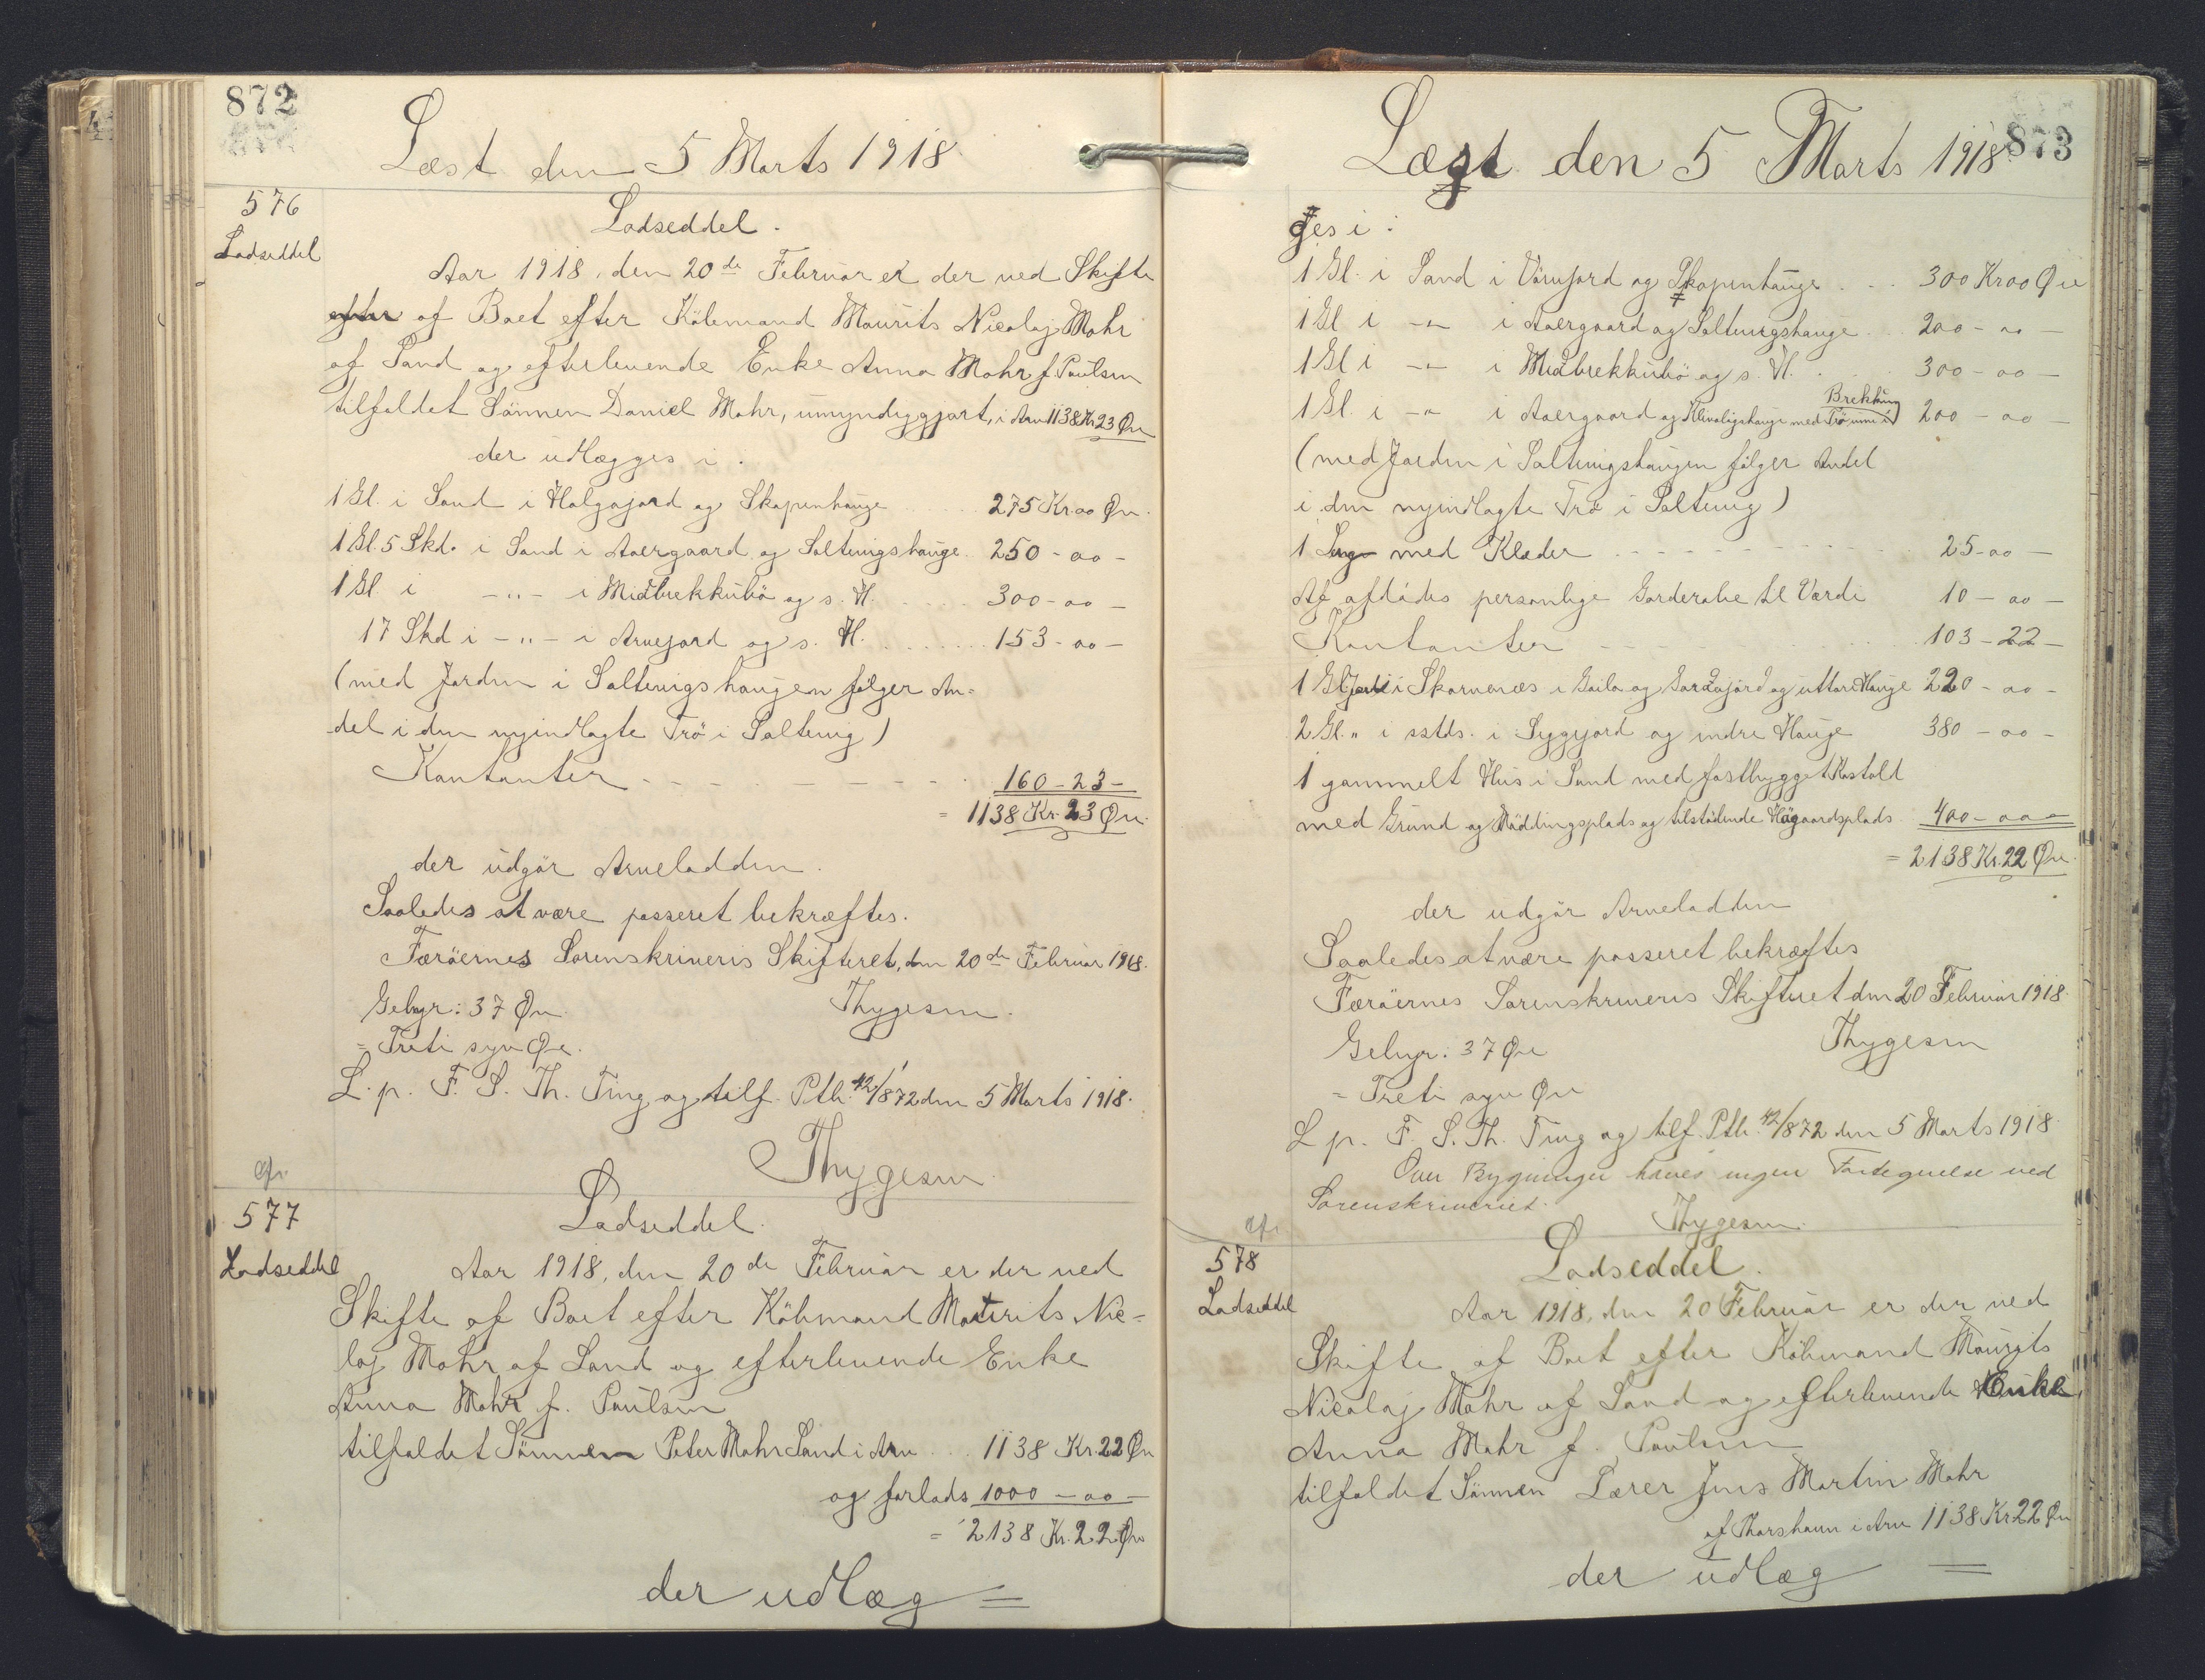 872
Læst den 5 Marts 1918
576
Lodseddel
Lodseddel.
Aar 1918, den 20de Februar er der ved Skifte
efter af Boet efter Köbmand Maurits Nicolaj Mohr
af Sand og efterlevende Enke Anna Mohr f. Poulsen
tilfaldet Sönnen Daniel Mohr, umyndiggjort, i Arv 1138 Kr. 23 Øre
der udlægges i:
1 Gl. i Sand i Halgajord og Skopenhauge 275 Kr. 00 Øre.
1 Gl. 5 Skd. i Sand i Aaergaard og Saltenigshauge 250 - 00 -
1 Gl. i -"- i Midbrekkubö og s. H. 300 - 00 -
17 Skd i -"- i Arnejord og s. H. 153 - 00 -
(med Jorden i Saltenigshaugen fölger An-
del i den nyindlagte Trö i Saltenig)
Kontanter 160 - 23 -
= 1138 Kr. 23 Øre.
der udgör Arvelodden.
Saaledes at være passeret bekræftes.
Færöernes Sorenskriveris Skifteret, den 20de Februar 1918.
Gebyr: 37 Øre. Thygesen.
= Treti syv Øre.
L. p. F. S. Th. Ting og tilf. Ptb. 42/872 den 5 Marts 1918.
Thygesen.
cfr.
577
Lodseddel
Lodseddel.
Aar 1918, den 20de Februar er der ved
Skifte af Boet efter Köbmand Maurits Nic-
laj Mohr af Sand og efterlevende Enke
Anna Mohr f. Poulsen
tilfaldet Sönnen Peter Mohr Sand i Arv 1138 Kr. 22 Øre
og forlods 1000 - 00 -
= 2138 Kr. 22 Øre
der udlæg=
873
Læst den 5 Marts 1918
ges i:
1 Gl. i Sand i Vörujord og Skopenhauge 300 Kr 00 Øre
1 Gl i -"- i Aaergaard og Saltenigshauge 200 - 00 -
1 Gl i -"- i Midbrekkubö og s. H. 300 - 00 -
Brekking
1 Gl. i -"- i Aaergaard og Klivaligshauge med Tröunni i 200 - 00 -
(med Jorden i Saltenigshaugen fölger Andel
i den nyindlagte Trö i Saltenig)
1 Seng med Klæder 25 - 00 -
Af afdödes personlige Garderobe til Værdi 10 - 00 -
Kontanter 103 - 22 -
1 Gl Jord i Skarvenæs i Gaila og Gardajord og uttari Hauge 220 - 00 -
2 Gl. " i sstds. i Syggjord og indre Hauge 380 - 00 -
1 gammelt Hus i Sand med fastbygget Kostald
med Grund og Möddingsplads og tilstödende Högaardsplads 400 - 00 -
= 2138 Kr. 22 Øre.
der udgör Arvelodden
Saaledes at være passeret bekræftes
Færöernes Sorenskriveris Skifteret den 20 Februar 1918.
Gebyr: 37 Øre Thygesen
= Treti syv Øre
L p. F. S. Th. Ting og tilf. Ptb. 42/872 den 5 Marts 1918.
Over Bygninger haves ingen Fortegnelse ved
Sorenskriveriet. Thygesen.
cfr.
578
Lodseddel
Lodseddel.
Aar 1918, den 20 Februar er der ved
Skifte af Boet efter Köbmand Maurits
Nicolaj Mohr af Sand og efterlevende Enke
Anna Mohr f. Poulsen
tilfaldet Sönnen Lærer Jens Martin Mohr
af Thorshavn i Arv 1138 Kr 22 Øre
der udlæg=